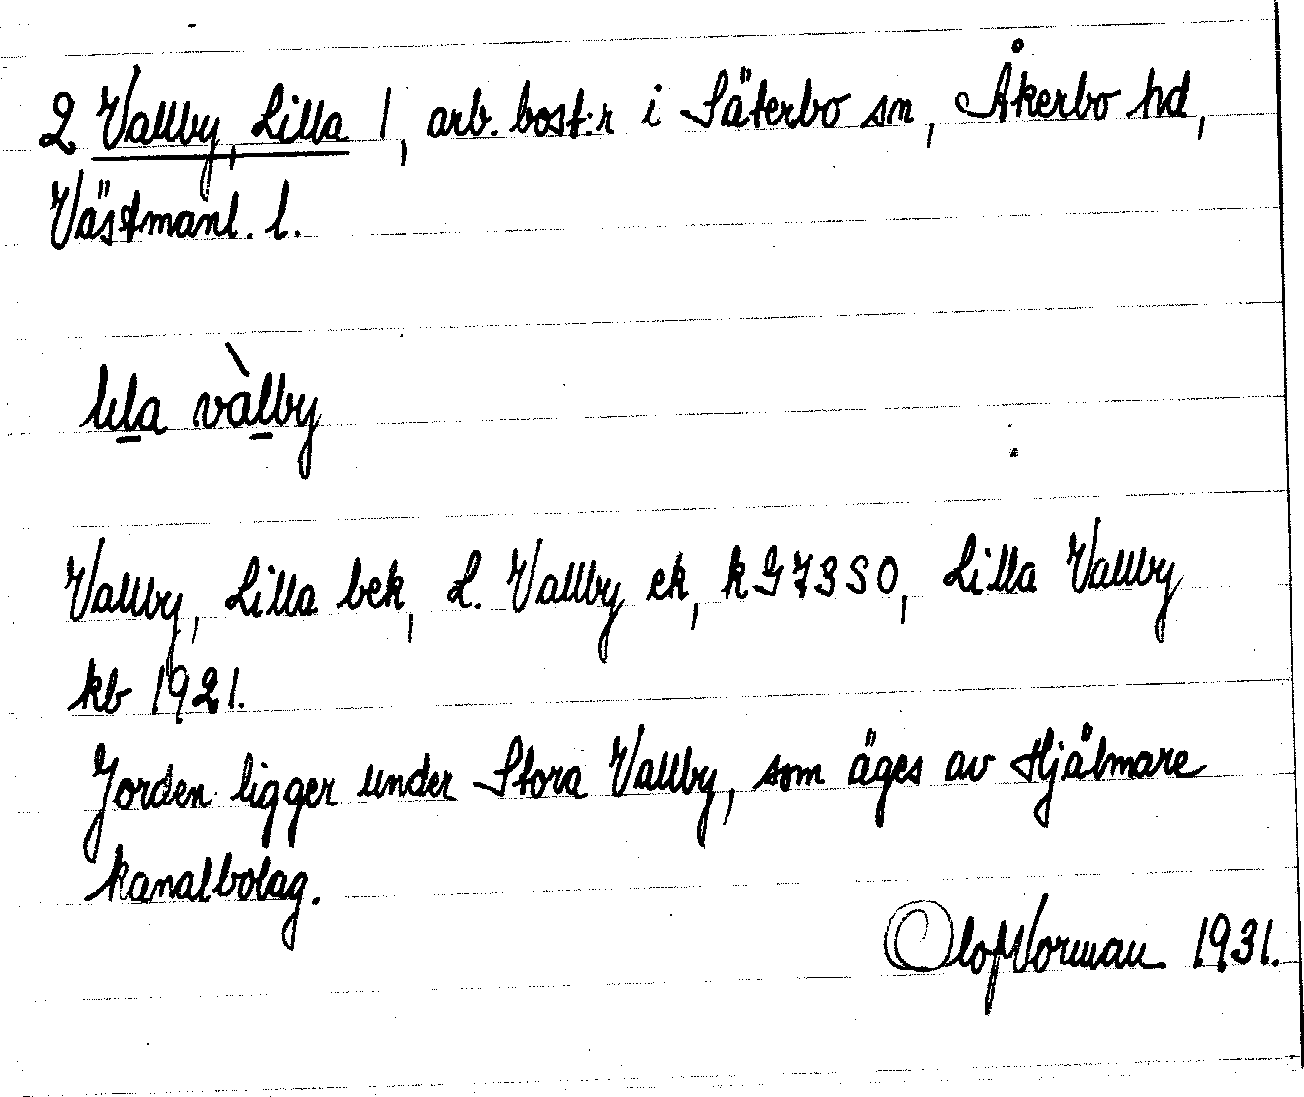 2 Vallby, Lilla 1, arb. bost:r i Säterbo sn, Åkerbo hd,
Västmanl. l.
lila vàlby
Vallby, Lilla bek, L. Vallby ek, k G73SO, Lilla Vallby
kb 1921.
Jorden ligger under Stora Vallby, som äges av Hjälmare
kanalbolag.
Olof Norman 1931.